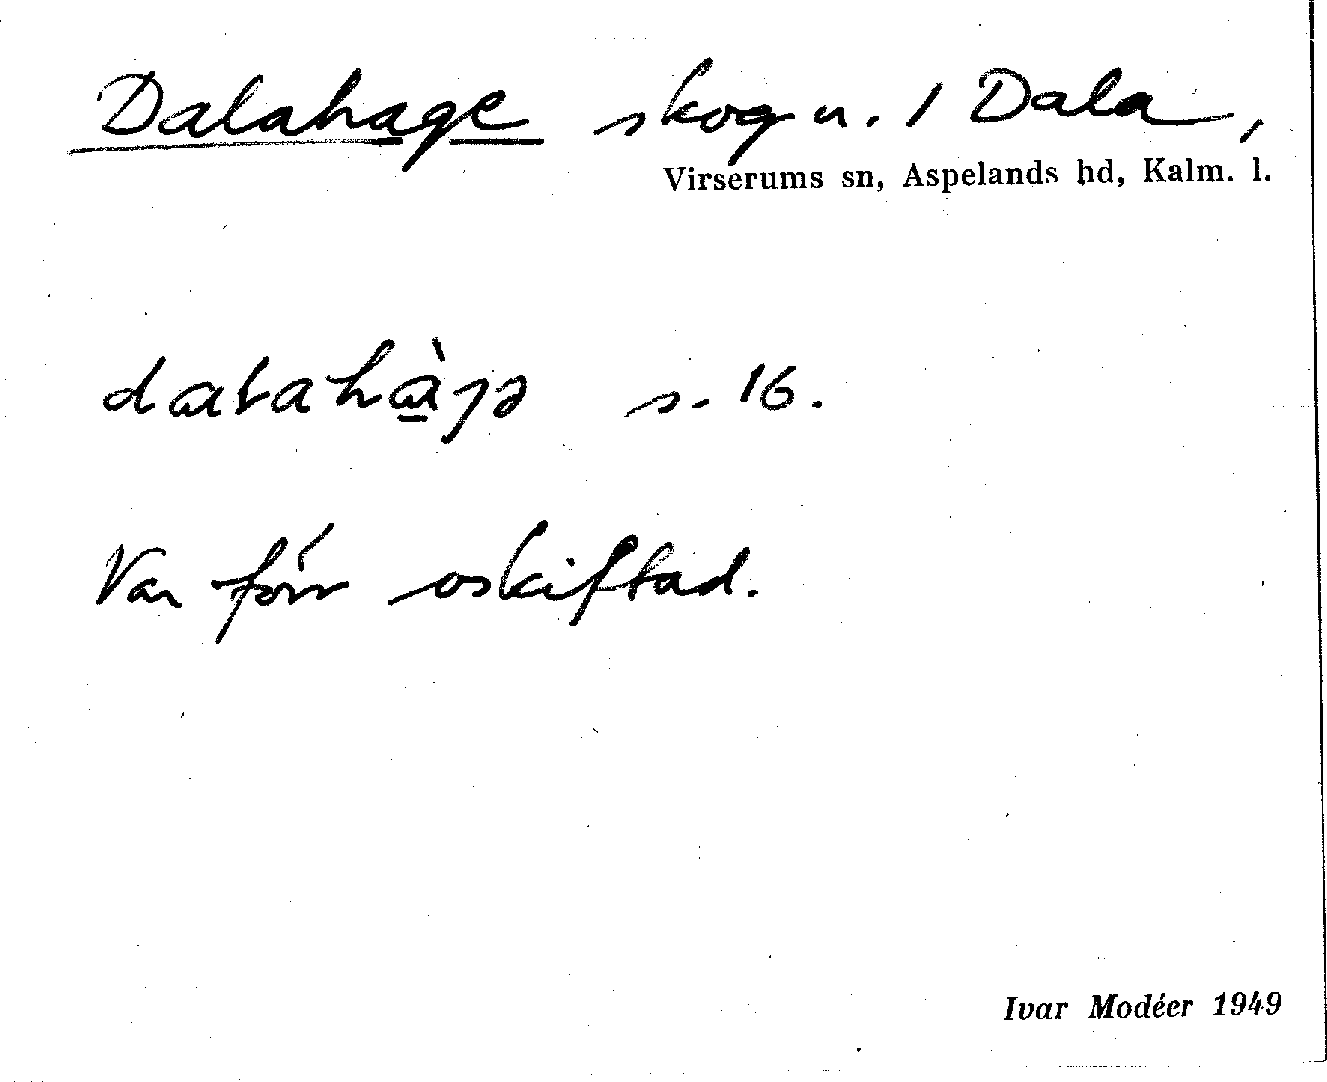 Dalahage skog u. 1 Dala,
Virserums sn, Aspelands hd, Kalm. l.
s. 16.
Var förr oskiftad.
Ivar Modéer 1949